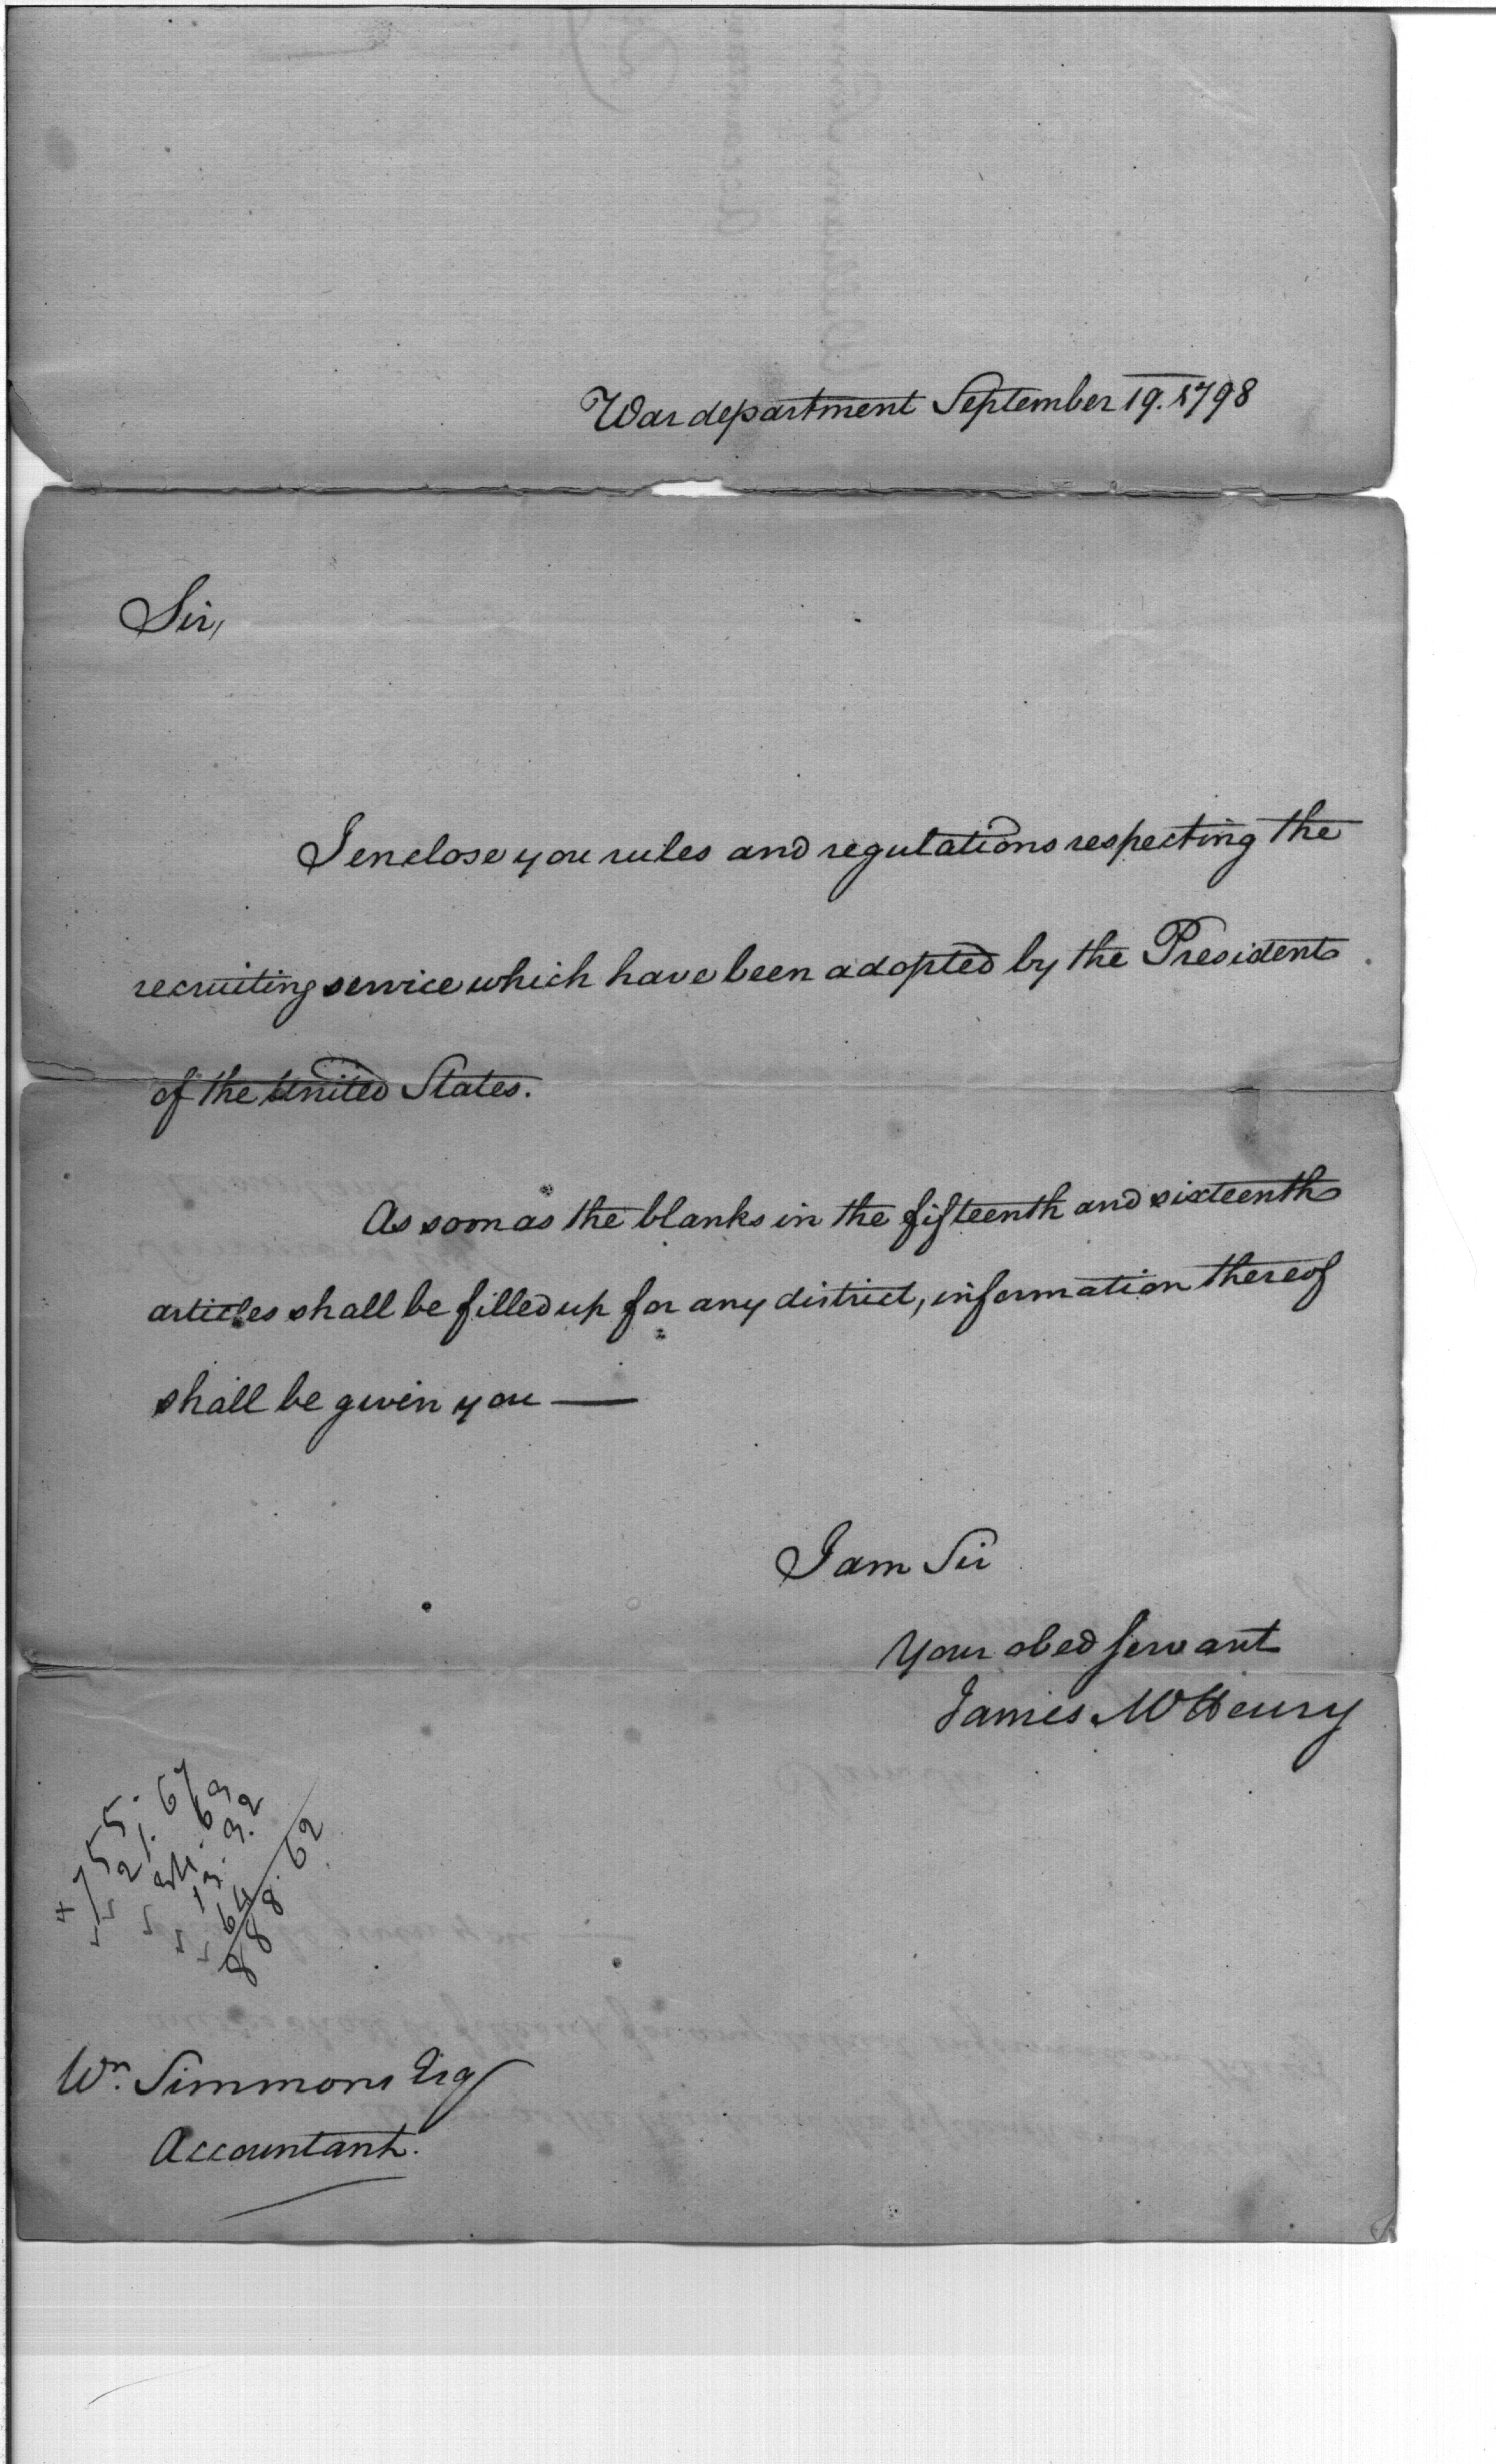 War department September 19. 1798
Sir,
I enclose you rules and regulations respecting the
recruiting service which have been adopted by the President
of the United States.
As soon as the blanks in the fifteenth and sixteenth
articles shall be filled up for any district, information thereof
shall be given you —
I am Sir
Your obed servant
James McHenry
Wm. Simmons Esq
Accountant.